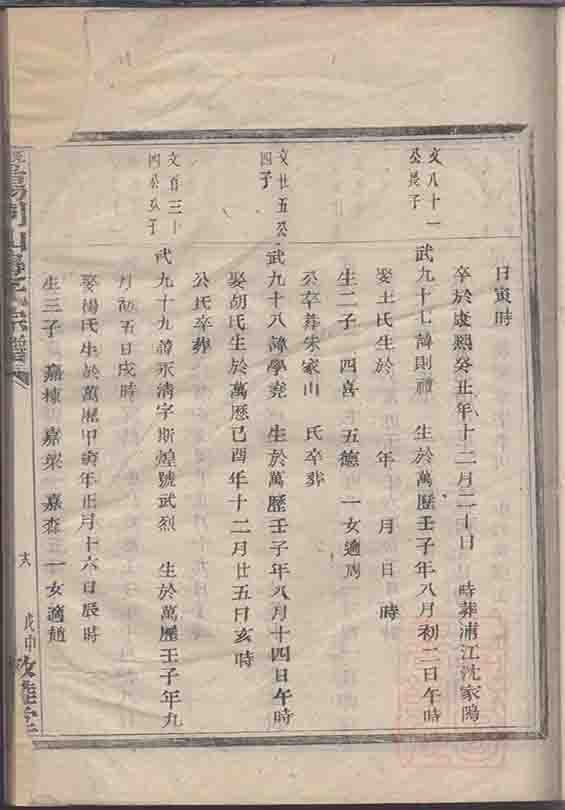 日寅時
卒於康熙癸丑年十二月二十日 時葬浦江沈家隖
文八十一
公長子
武九十七諱則禮 生於萬歷壬子年八月初二日午時
娶王氏生於 年 月 日 時
生二子 四喜 五德 一女適周
公卒葬朱家山 氏卒葬
文廿五公
四子
武九十八諱學堯 生於萬歷壬子年八月十四日午時
娶胡氏生於萬歷己酉年十二月廿五日亥時
公氏卒葬
文百三十
四公次子
武九十九諱永清字斯煌號武烈 生於萬歷壬子年九
月初五日戌時
娶楊氏生於萬歷甲寅年正月十六日辰時
生三子 嘉棟 嘉梁 嘉森 一女適趙
宗譜
戊申